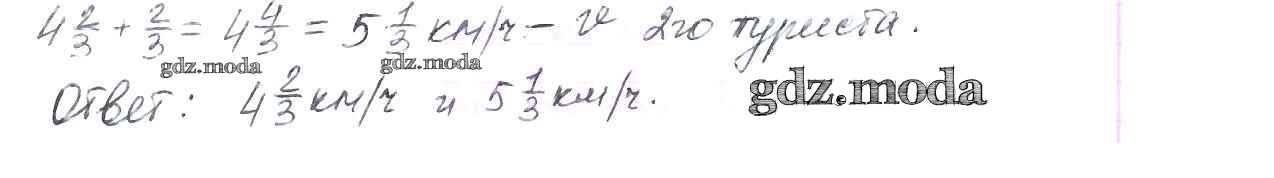 4 2/3 + 2/3 = 4 4/3 = 5 1/3 км/ч – v 2го туриста.
gdz.moda gdz.moda
Ответ: 4 2/3 км/ч и 5 1/3 км/ч.
gdz.moda